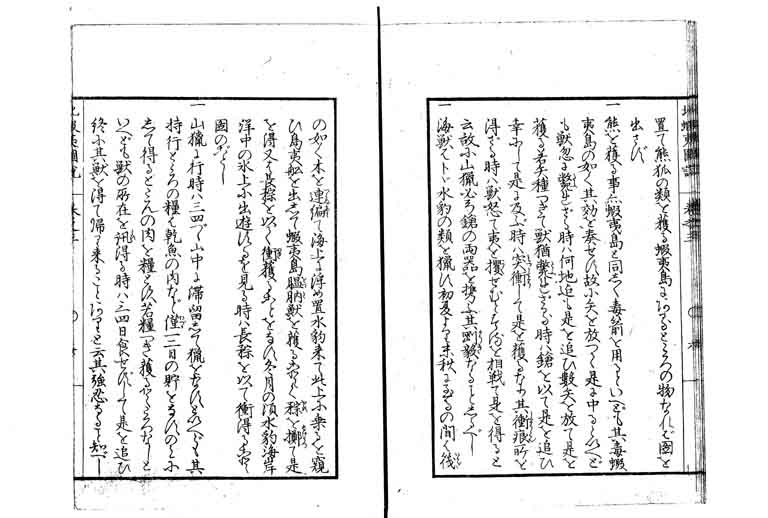 置て熊狐の類を獲る蝦夷島にあるところの物なれバ図を
出さず
一 熊を獲る事ハ蝦夷島と同しく毒箭を用るといへども其毒蝦
夷島の如く其効を奏せす故に矢を放つて是に中るといへど
も獣忽に斃せざる時ハ何地迄も是を追ひ数矢を放て是を
獲る若矢種つきて獣猶斃れさる時ハ鎗を以て是を追ひ
幸にして是に及ぶ時ハ突衝して是を獲るなり其衝痕所を
得ざる時ハ獣怒て夷を攫せむとするを相戦て是を得ると
云故に山猟必ら鎗の両器を携ふ其剛毅なることしるべし
一 海獣ハトヾ水豹の類を猟ひ初夏より末秋に至るの間ハ筏
の如く木を連編て海上に浮め置水豹来て此上に乗るを窺
ひ鳥夷舩を出して蝦夷島膃肭獣を獲る如く
を得又は長 を以て衝獲ることをなす冬月の頃水豹海岸
洋中の氷上に出遊ひゐるを見る時ハ長 を以て衝得る
図のごとし
一 山猟に行時ハ三四日山中に滞留して猟をなすといへども其
持行ところの糧ハ乾魚の肉なと僅一二日の貯をなすのミに
して得るところの肉を糧とす若糧つき獲るところなしと
いへども獣の所在を訊得る時ハ三四日食せずして是を追ひ
終に其獣を得て帰り来ることありと云其強忍なること知べし